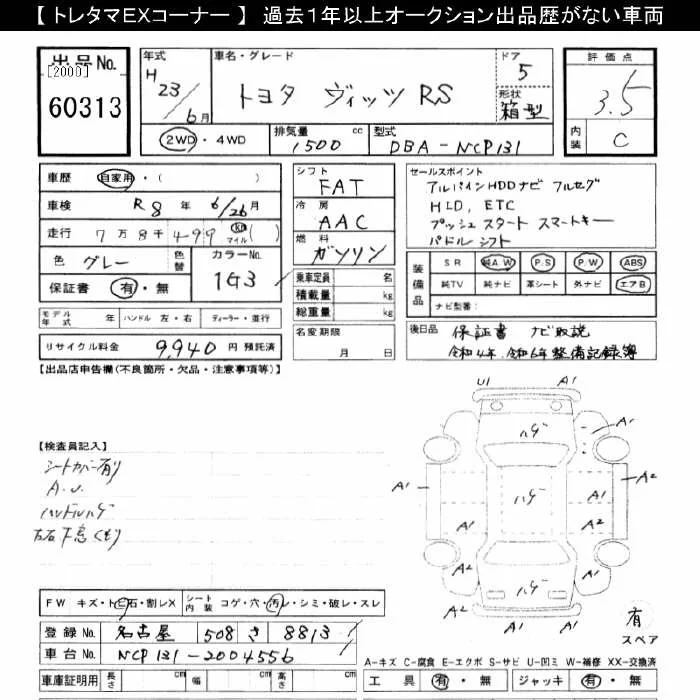 【 トレタマEXコーナー 】 過去1年以上オークション出品歴がない車両
出品No.
[2000]
60313
年式
H 23/6月
車名・グレード
トヨタ ヴィッツ RS
ドア
5
形状
箱型
2WD・4WD
排気量
1500 cc
型式
DBA-NCP131
評価点
3.5
内装
C
車歴 自家用・( )
車検 R8年 6/26月
走行 7万8千499 km マイル ( )
色 グレー
色替
カラーNo.
1G3
保証書 有・無
シフト
FAT
冷房
AAC
燃料
ガソリン
乗車定員 名
積載量 kg
総重量 kg
名変期限
月 日
セールスポイント
アルパインHDDナビ フルセグ
HID, ETC
プッシュスタート スマートキー
パドルシフト
装備品
SR 純AW P.S P.W ABS
純TV 純ナビ 革シート 外ナビ エアB
ナビ型番:
モデル年式 年 ハンドル 左・右 ディーラー・並行
リサイクル料金 9,940 円 預託済
後日品
保証書 ナビ取説
令和4年、令和6年整備記録簿
【出品店申告欄(不良箇所・欠品・注意事項等)】
【検査員記入】
シートカバー有り
A.U.
ハンドルハゲ
左右下廻くもり
U1 A1
ハゲ A1
A1 ハゲ A1 A2
A2
A1
ハゲ
A2 A1 A2
有
スペア
FW キズ・ト ヒ石・割レX
シート内装 コゲ・穴・汚レ・シミ・破レ・スレ
登録No. 名古屋 508 さ 8813
車台No. NCP131-2004556
車庫証明用 長さ cm 幅 cm 高さ cm
A-キズ C-腐食 E-エクボ S-サビ U-凹ミ W-補修 XX-交換済
工具 有・無 ジャッキ 有・無